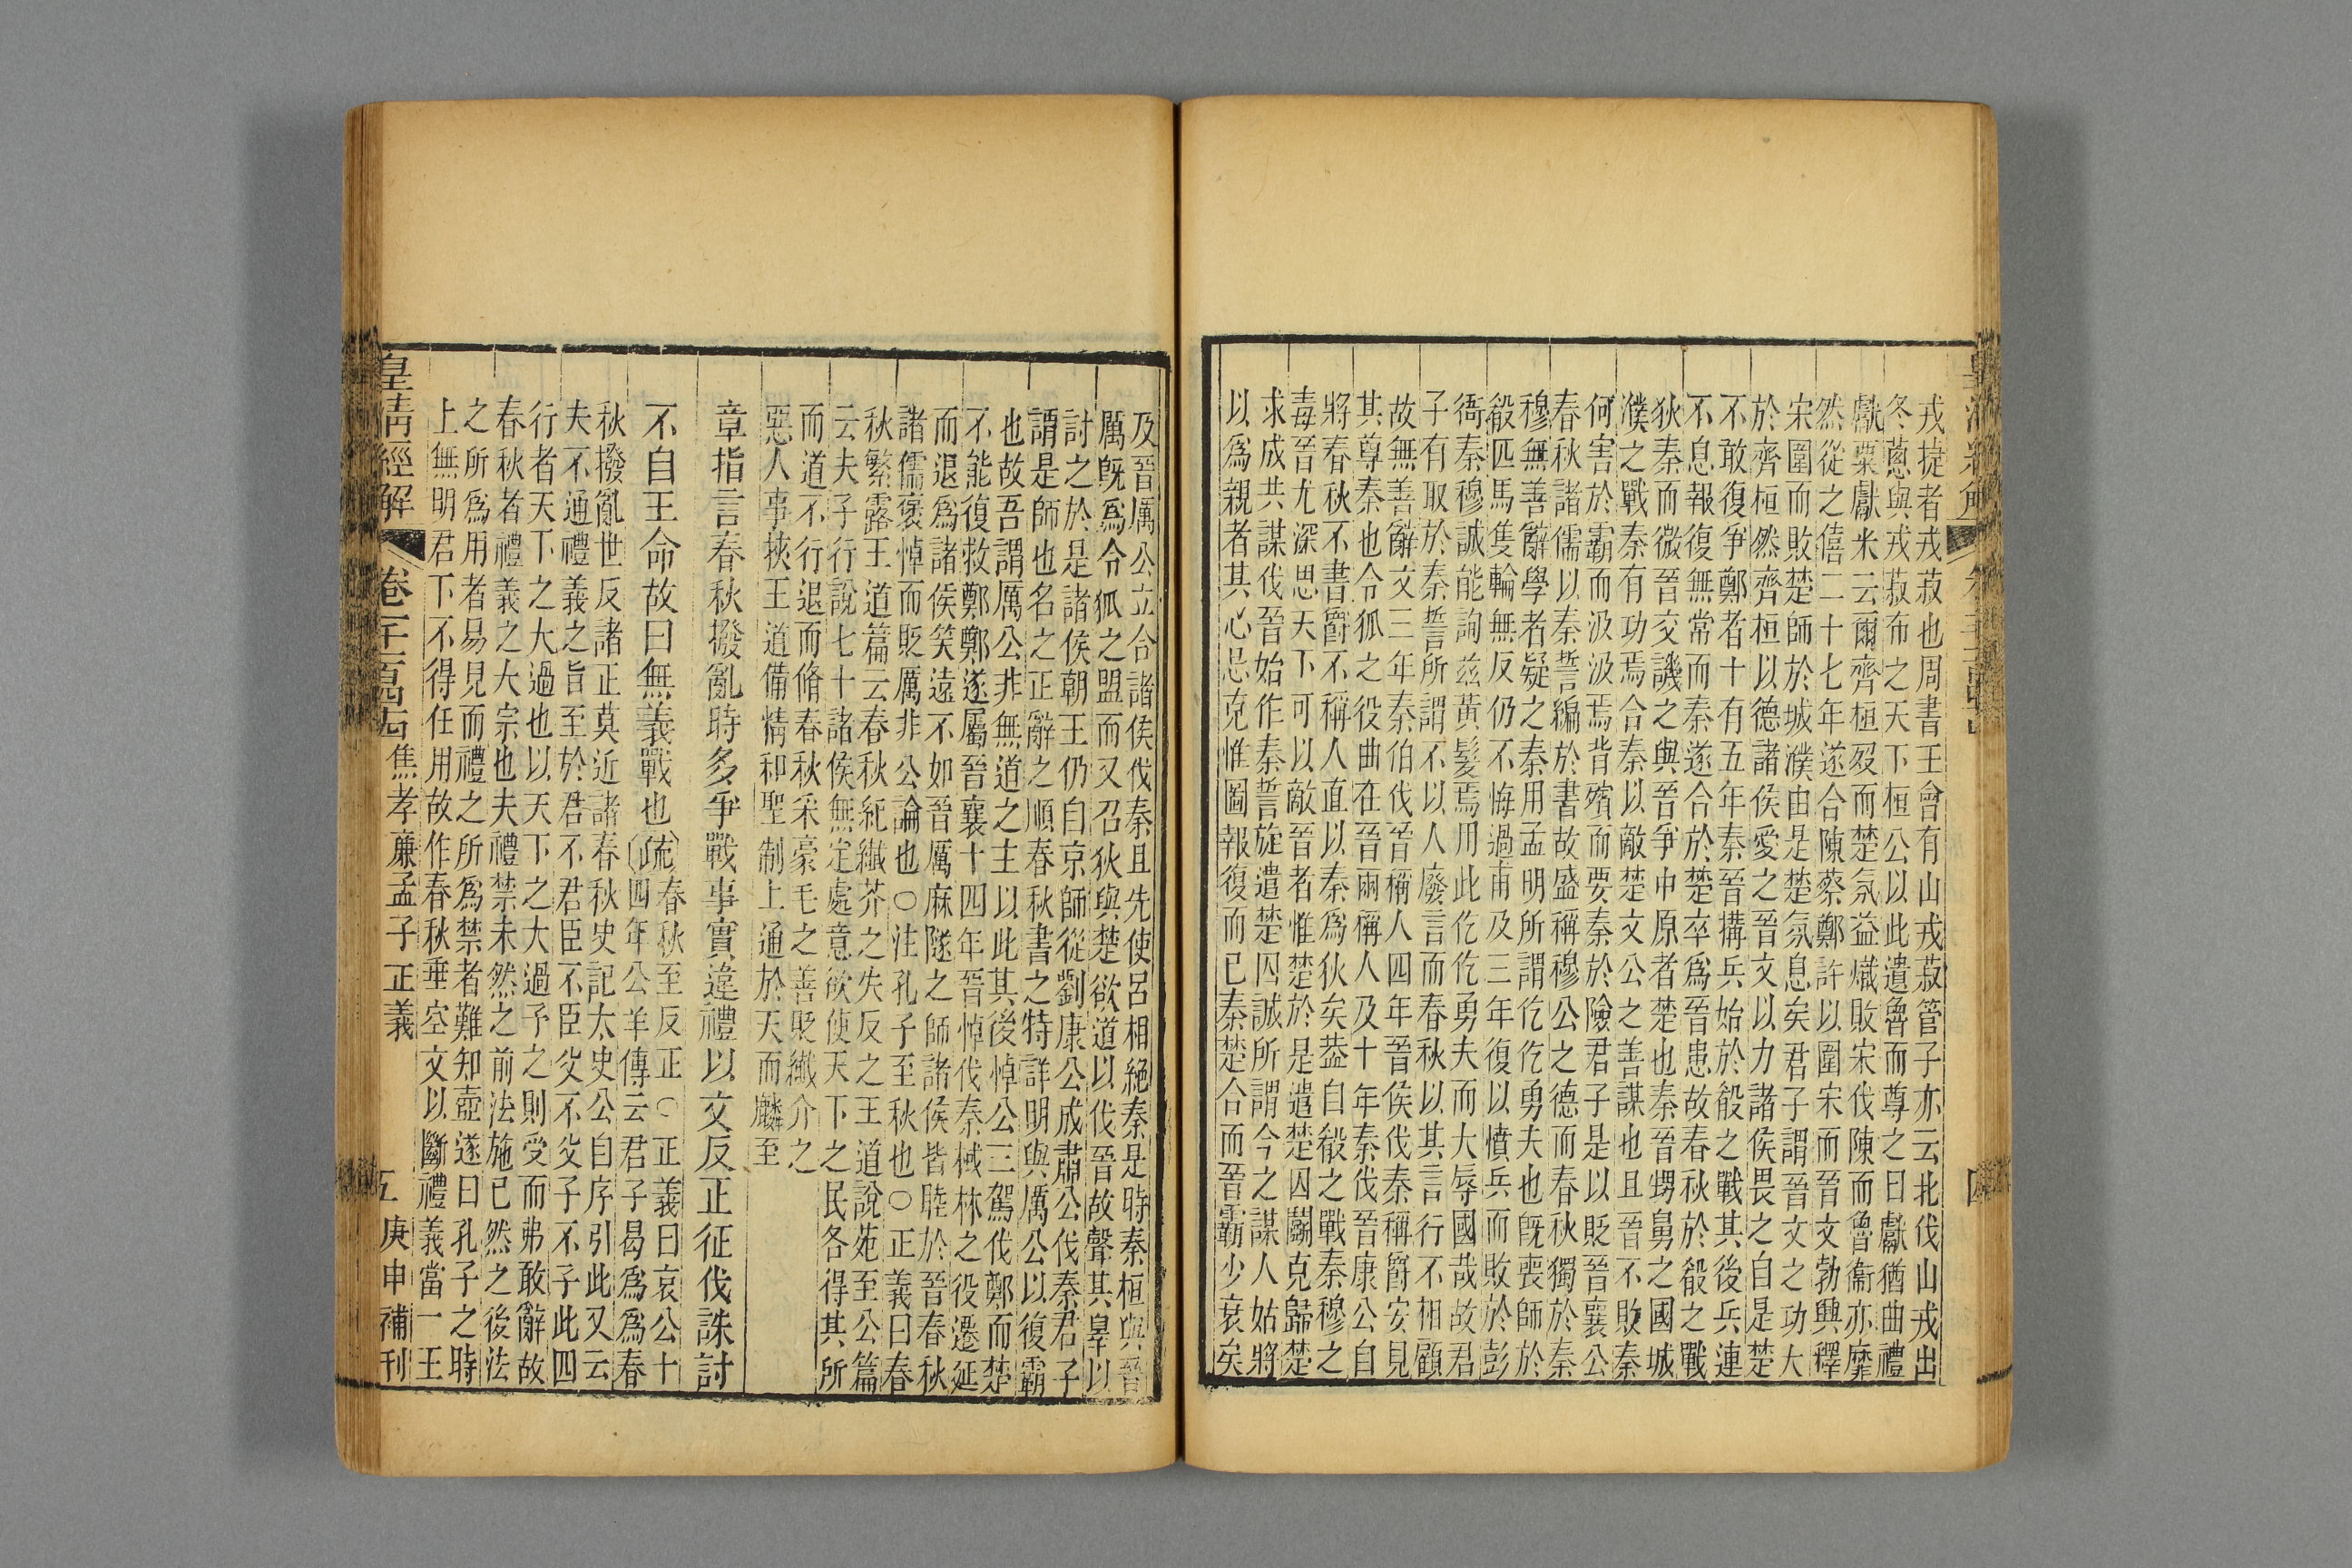 戎捷者戎菽也周書王會有山戎菽管子亦云北伐山戎出
冬蔥與戎菽布之天下桓公以此遺魯而尊之曰獻猶曲禮
獻粟獻米云爾齊桓歿而楚氛益熾敗宋伐陳而魯衞亦靡
然從之僖二十七年遂合陳蔡鄭許以圍宋而晉文勃興釋
宋圍而敗楚師於城濮由是楚氛息矣君子謂晉文之功大
於齊桓然齊桓以德諸侯愛之晉文以力諸侯畏之自是楚
不敢復爭鄭者十有五年秦晉搆兵始於殽之戰其後兵連
不息報復無常而秦遂合於楚卒為晉患故春秋於殽之戰
狄秦而微晉交譏之與晉爭中原者楚也秦晉甥舅之國城
濮之戰秦有功焉合秦以敵楚文公之善謀也且晉不敗秦
何害於霸而汲汲焉背殯而要秦於險君子是以貶晉襄公
春秋諸儒以秦誓編於書故盛稱穆公之德而春秋獨於秦
穆無善辭學者疑之秦用孟明所謂仡仡勇夫也旣喪師於
殽匹馬隻輪無反仍不悔過甫及三年復以憤兵而敗於彭
衙秦穆誠能詢茲黃髮焉用此仡仡勇夫而大辱國哉故君
子有取於秦誓所謂不以人廢言而春秋以其言行不相顧
故無善辭文三年秦伯伐晉稱人四年晉侯伐秦稱爵安見
其尊秦也令狐之役曲在晉兩稱人及十年秦伐晉康公自
將春秋不書爵不稱人直以秦為狄矣葢自殽之戰秦穆之
毒晉尤深思天下可以敵晉者惟楚於是遣楚囚鬬克歸楚
求成共謀伐晉始作秦誓旋遣楚囚誠所謂今之謀人姑將
以爲親者其心忌克惟圖報復而已秦楚合而晉霸少衰矣
及晉厲公立合諸侯伐秦且先使呂相絕秦是時秦桓與晉
厲旣爲令狐之盟而又召狄與楚欲道以伐晉故聲其辠以
討之於是諸侯朝王仍自京師從劉康公成肅公伐秦君子
謂是師也名之正辭之順春秋書之特詳明與厲公以復霸
也故吾謂厲公非無道之主以此其後悼公三駕伐鄭而楚
不能復救鄭鄭遂屬晉襄十四年晉悼伐秦棫林之役遷延
而退爲諸侯笑遠不如晉厲麻隧之師諸侯皆睦於晉春秋
諸儒褒悼而貶厲非公論也○注孔子至秋也○正義曰春
秋繁露王道篇云春秋紀纖芥之失反之王道說苑至公篇
云夫子行說七十諸侯無定處意欲使天下之民各得其所
而道不行退而脩春秋采豪毛之善貶纖介之
惡人事挾王道備情和聖制上通於天而麟至
章指言春秋撥亂時多爭戰事實違禮以文反正征伐誅討
不自王命故曰無義戰也疏春秋至反正○正義曰哀公十
四年公羊傳云君子曷爲爲春
秋撥亂世反諸正莫近諸春秋史記太史公自序引此又云
夫不通禮義之旨至於君不君臣不臣父不父子不子此四
行者天下之大過也以天下之大過予之則受而弗敢辭故
春秋者禮義之大宗也夫禮禁未然之前法施已然之後法
之所爲用者易見而禮之所爲禁者難知壺遂曰孔子之時
上無明君下不得任用故作春秋垂空文以斷禮義當一王
皇清經解 卷一千一百四十 焦孝廉孟子正義 五 庚申補刊